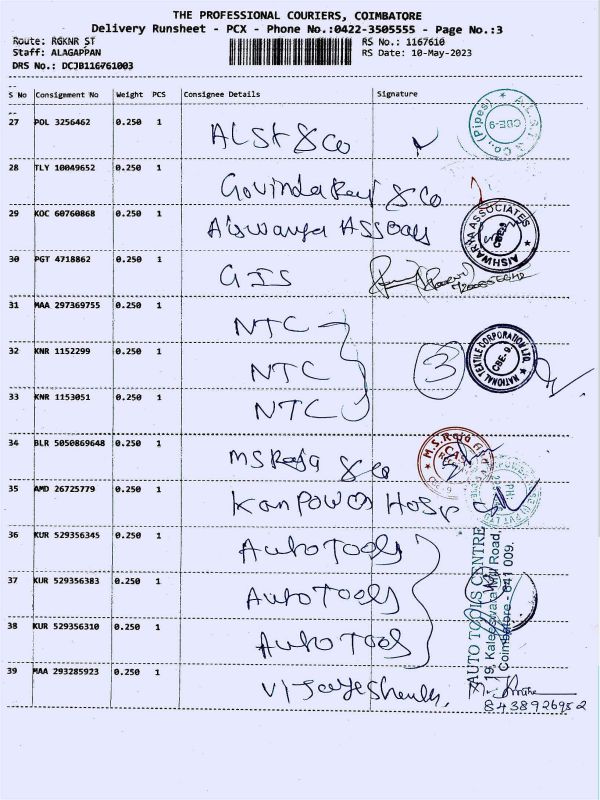 THE PROFESSIONAL COURIERS, COIMBATORE
Delivery Runsheet - PCX - Phone No.:0422-3505555 - Page No.:3
Route: RGKNR ST
RS No.: 1167610
Staff: ALAGAPPAN
RS Date: 10-May-2023
DRS No.: DCJB116761003
S No Consignment No Weight PCS Consignee Details Signature
27 POL 3256462 0.250 1 ALSt & Co
A.L.S.T & Co., (Pipes) CBE-9
28 TLY 10049652 0.250 1 & Co
29 KOC 60760868 0.250 1
AISHWARYA ASSOCIATES
30 PGT 4718862 0.250 1 GIS
31 MAA 297369755 0.250 1 NTC
32 KNR 1152299 0.250 1 NTC 3
NATIONAL TEXTILE CORPORATION LTD. CBE-9
33 KNR 1153051 0.250 1 NTC
34 BLR 5050869648 0.250 1 MS Raja & Co
M.S.Raja
35 AMD 26725779 0.250 1 Kanpower Hosp
36 KUR 529356345 0.250 1 Auto Tools
37 KUR 529356383 0.250 1 Auto Tools
38 KUR 529356310 0.250 1 Auto Tools
AUTO TOOLS CENTRE
19, Kaleeswara Mill Road,
Coimbatore - 641 009.
39 MAA 293285923 0.250 1
8438926952